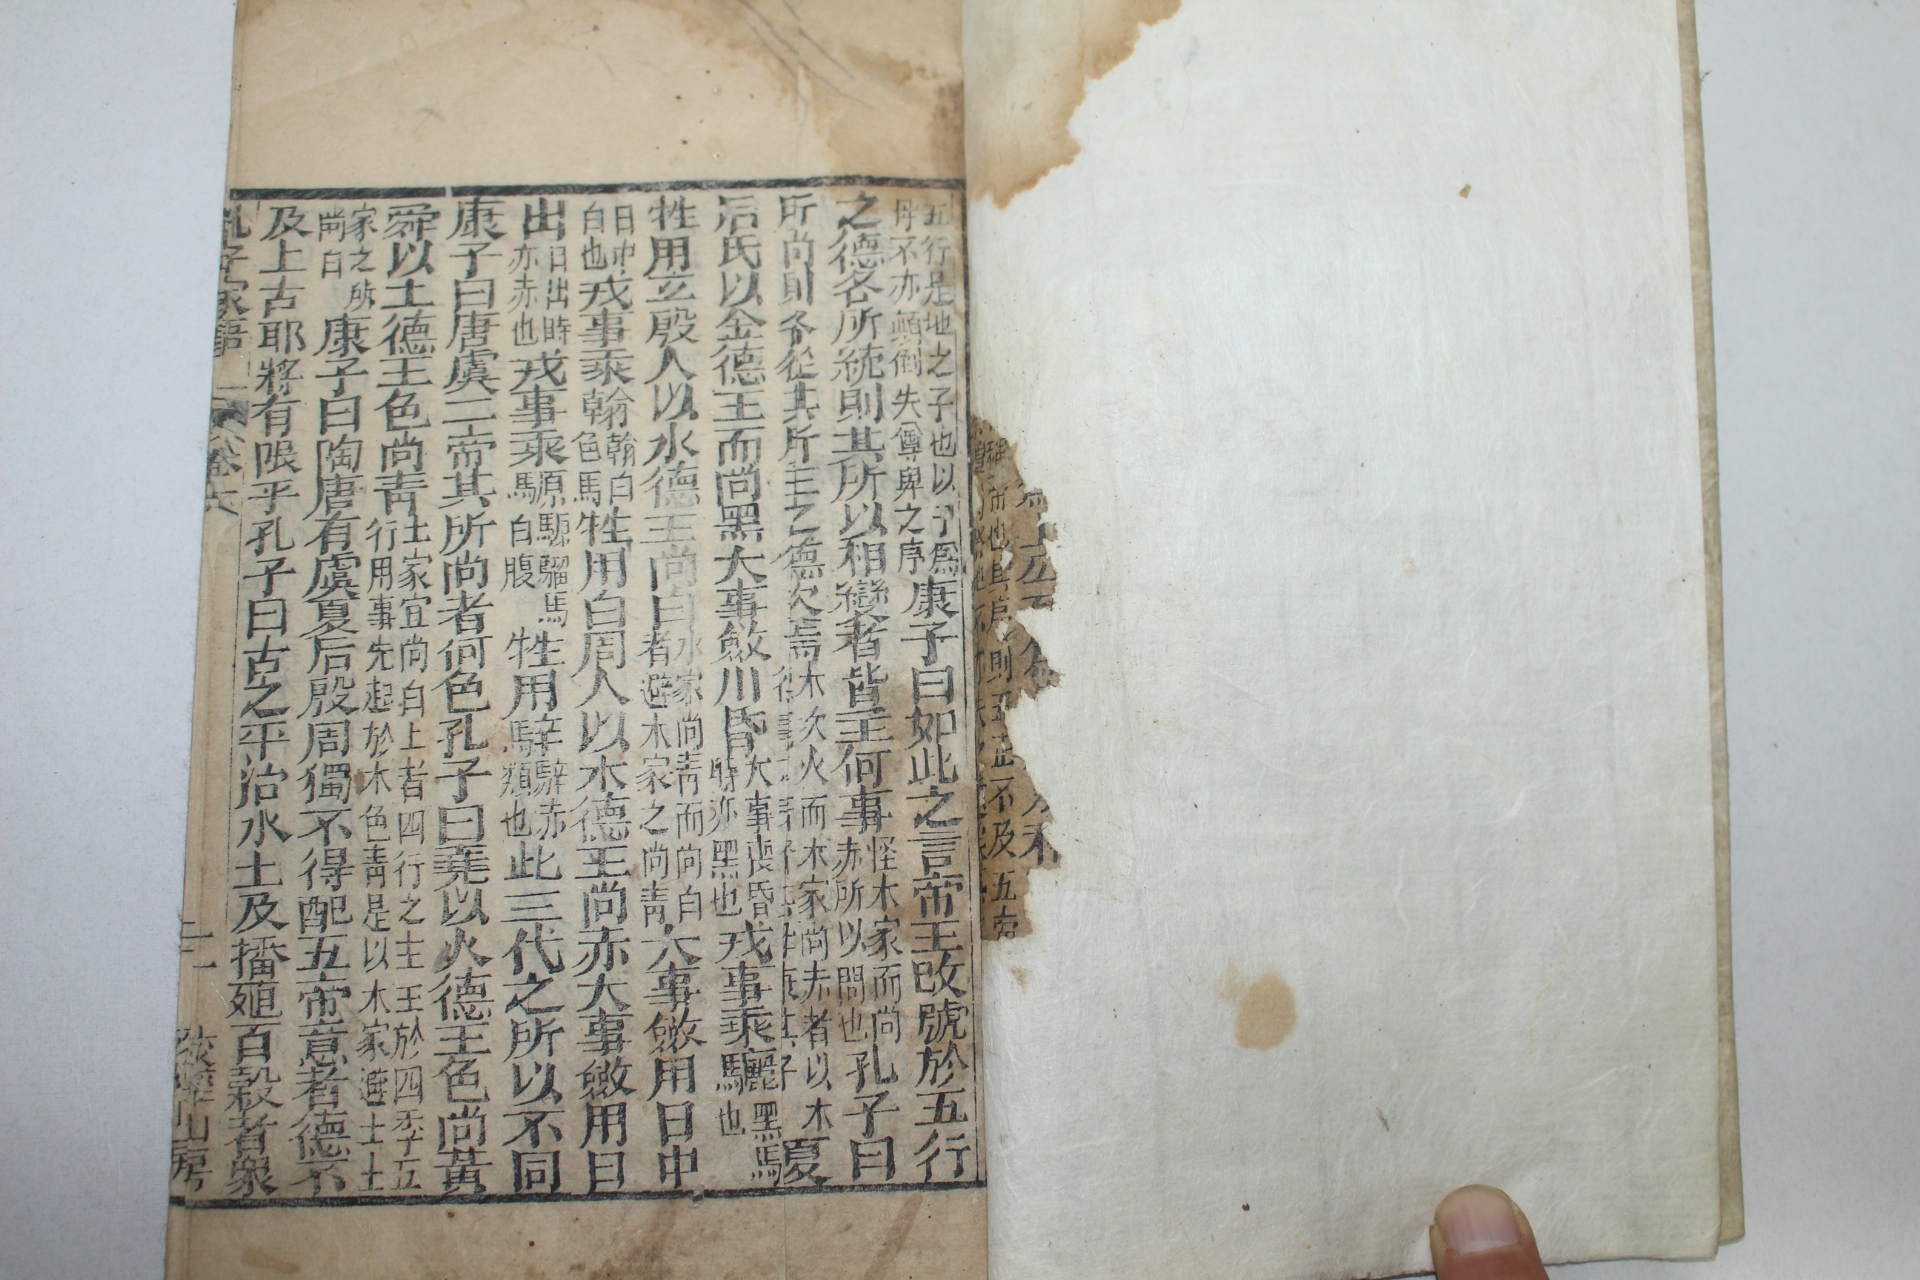 五行是地之子也以子爲
母不亦顚倒失尊卑之序
康子曰如此之言帝王改號於五行
之德各所統則其所以相變者皆主何事
怪木家而尚
赤所以問也
孔子曰
所尚則各從其所王之德次焉
木次火而木家尚赤者以木
夏
后氏以金德王而尚黑大事斂用昏
大事喪昏
時亦黑也
戎事乘驪
驪黑馬
也
牲用玄殷人以水德王尚白
水家尚靑而尚白
者避木家之尚靑
大事斂用日中
日中
白也
戎事乘翰
翰白
色馬
牲用白周人以木德王尚赤大事斂用日
出
日出時
亦赤也
戎事乘
原騵騮馬
馬白腹
牲用
騂騂赤
馬類也
此三代之所以不同
康子曰唐虞二帝其所尚者何色孔子曰堯以火德王色尚黃
舜以土德王色尚靑
土家宜尚白土者四行之主王於四季五
行用事先起於木色靑是以木家避土土
家之所
尚白
康子曰陶唐有虞夏后殷周獨不得配五帝意者德不
及上古耶將有限乎孔子曰古之平治水土及播殖百穀者衆
孔子家語
卷六
二
山房